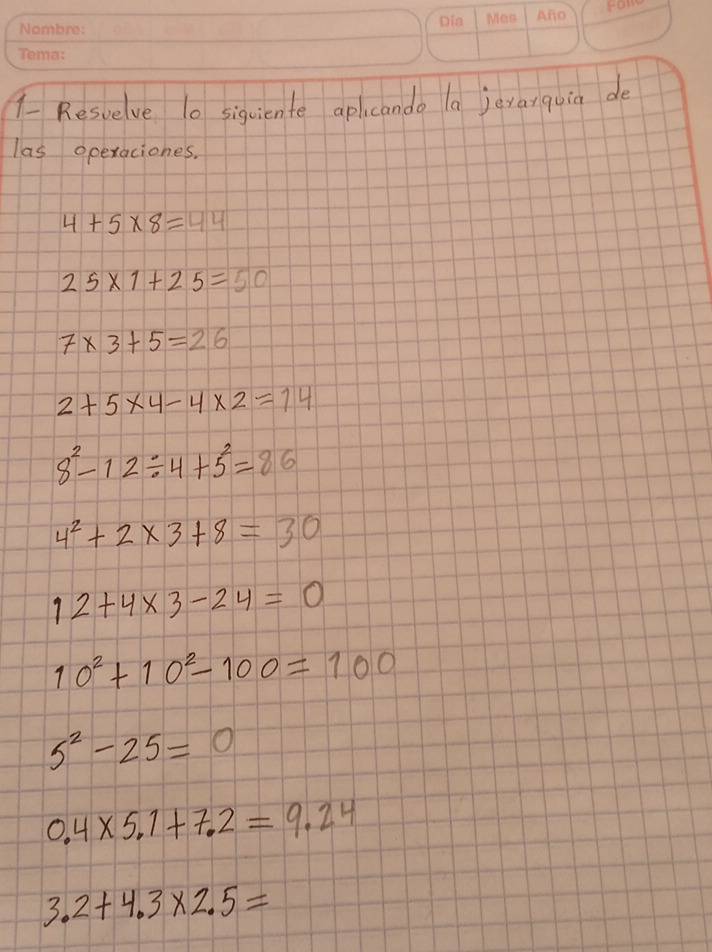 Nombre:
Tema:
Día Mes Año Folio
1- Resuelve lo siguiente aplicando la jerarquia de
las operaciones.
4+5×8=44
25×1+25=50
7×3+5=26
2+5×4-4×2=14
8²-12÷4+5²=86
4²+2×3+8=30
12+4×3-24=0
10²+10²-100=100
5²-25=0
0.4×5.1+7.2=9.24
3.2+4.3×2.5=